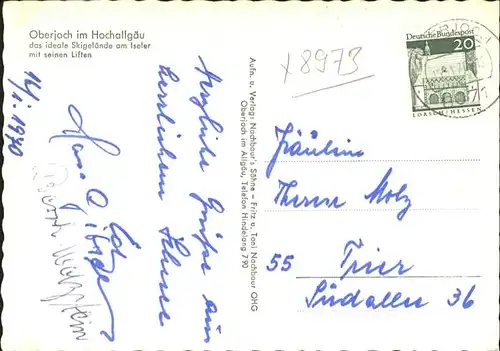 Oberjoch im Hochallgäu
das ideale Skigelände am Iseler
mit seinen Liften
14/1. 1970
Herzliche Grüße aus
herrlichem Schnee
Aufn. u. Verlag: Nachbaur's Söhne – Fritz u. Toni Nachbaur OHG
Oberjoch im Allgäu, Telefon Hindelang 790
x 8973
Deutsche Bundespost
20
LORSCH/HESSEN
Fräulein
Molz
55 Trier
Südallee 36